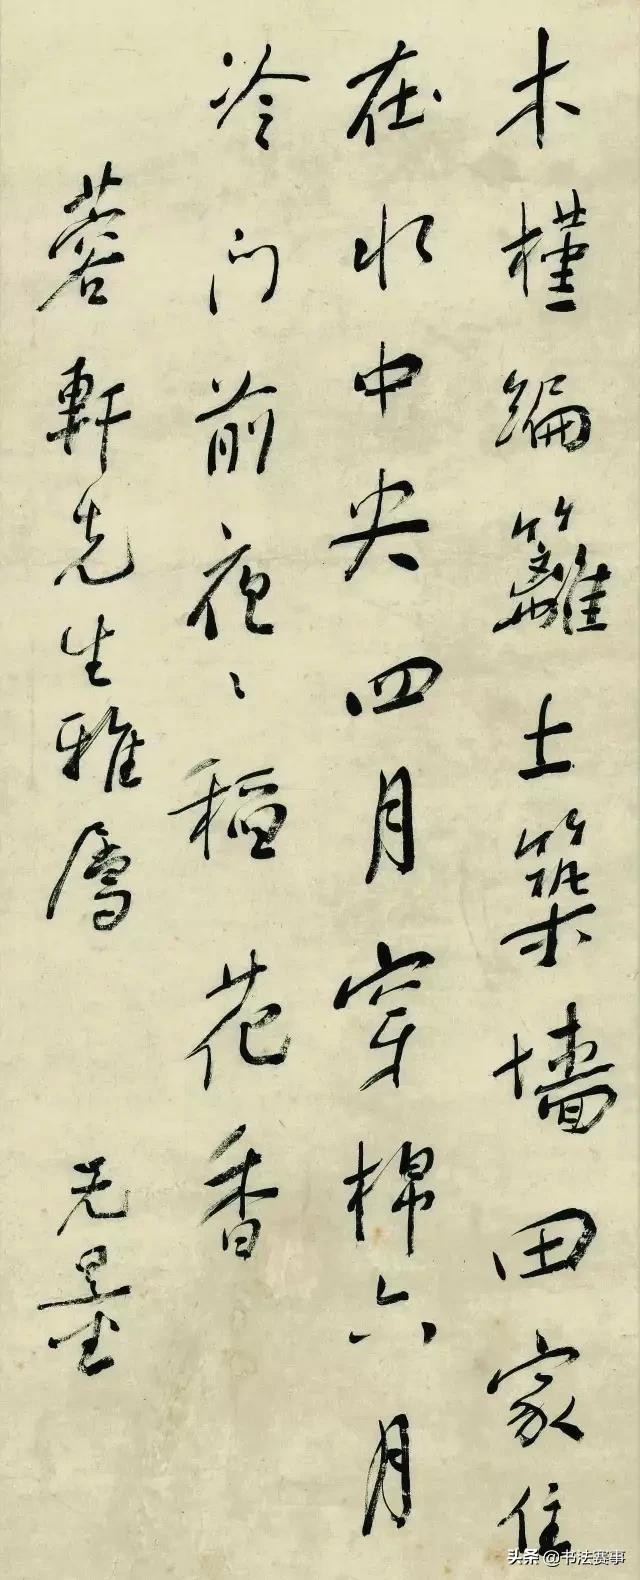 木槿编籬土築墙田家住
在水中央四月穿棉六月
冷门前夜〻稻花香
蓉軒先生雅属
无量
头条@书法赛事